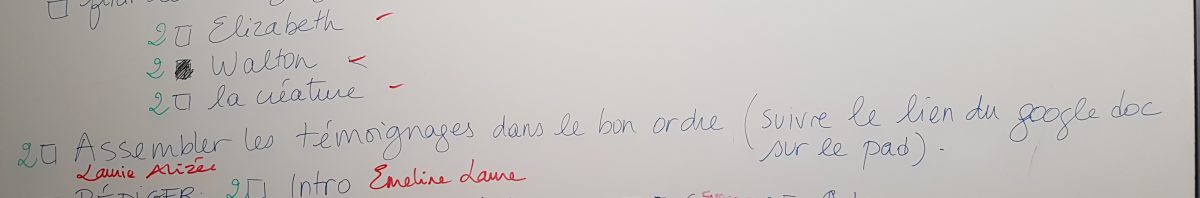 2 □ Elizabeth -
2 ■ Walton <
2 □ la créature -
2 □ Assembler les témoignages dans le bon ordre (suivre le lien du google doc
sur le pad).
Laurie Alizée
RÉDIGER. 2 □ Intro Emeline Laure